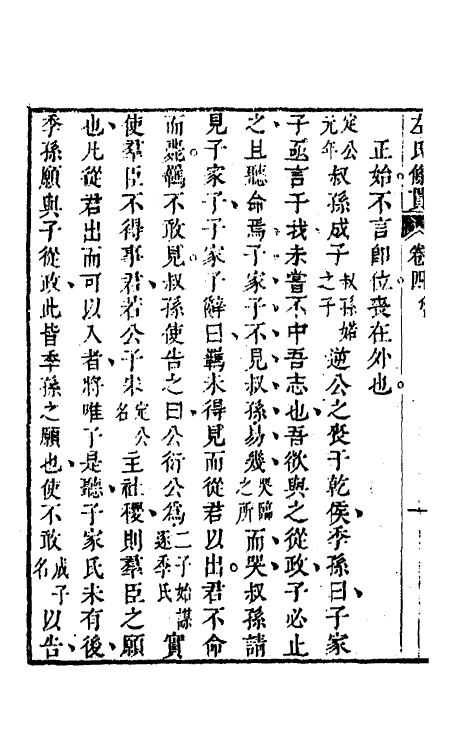 左氏條貫 卷四
正始不言卽位喪在外也
定公元年叔孫成子叔孫婼之子逆公之喪于乾侯季孫曰子家
子亟言于我未嘗不中吾志也吾欲與之從政子必止
之且聽命焉子家子不見叔孫易幾哭臨之所而哭叔孫請
見子家子子家子辭曰羈未得見而從君以出君不命
而薨羈不敢見叔孫使告之曰公衍公爲二子始謀逐季氏實
使羣臣不得事君若公子宋定公名主社稷則羣臣之願
也凡從君出而可以入者將唯子是聽子家氏未有後
季孫願與子從政此皆季孫之願也使不敢成子名以告